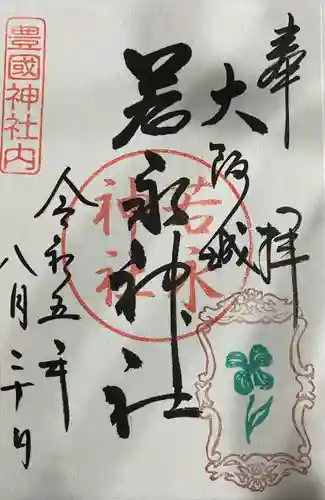 奉拝
大阪城
若永神社
若永
神社
令和五年
八月三十日
豊國神社内